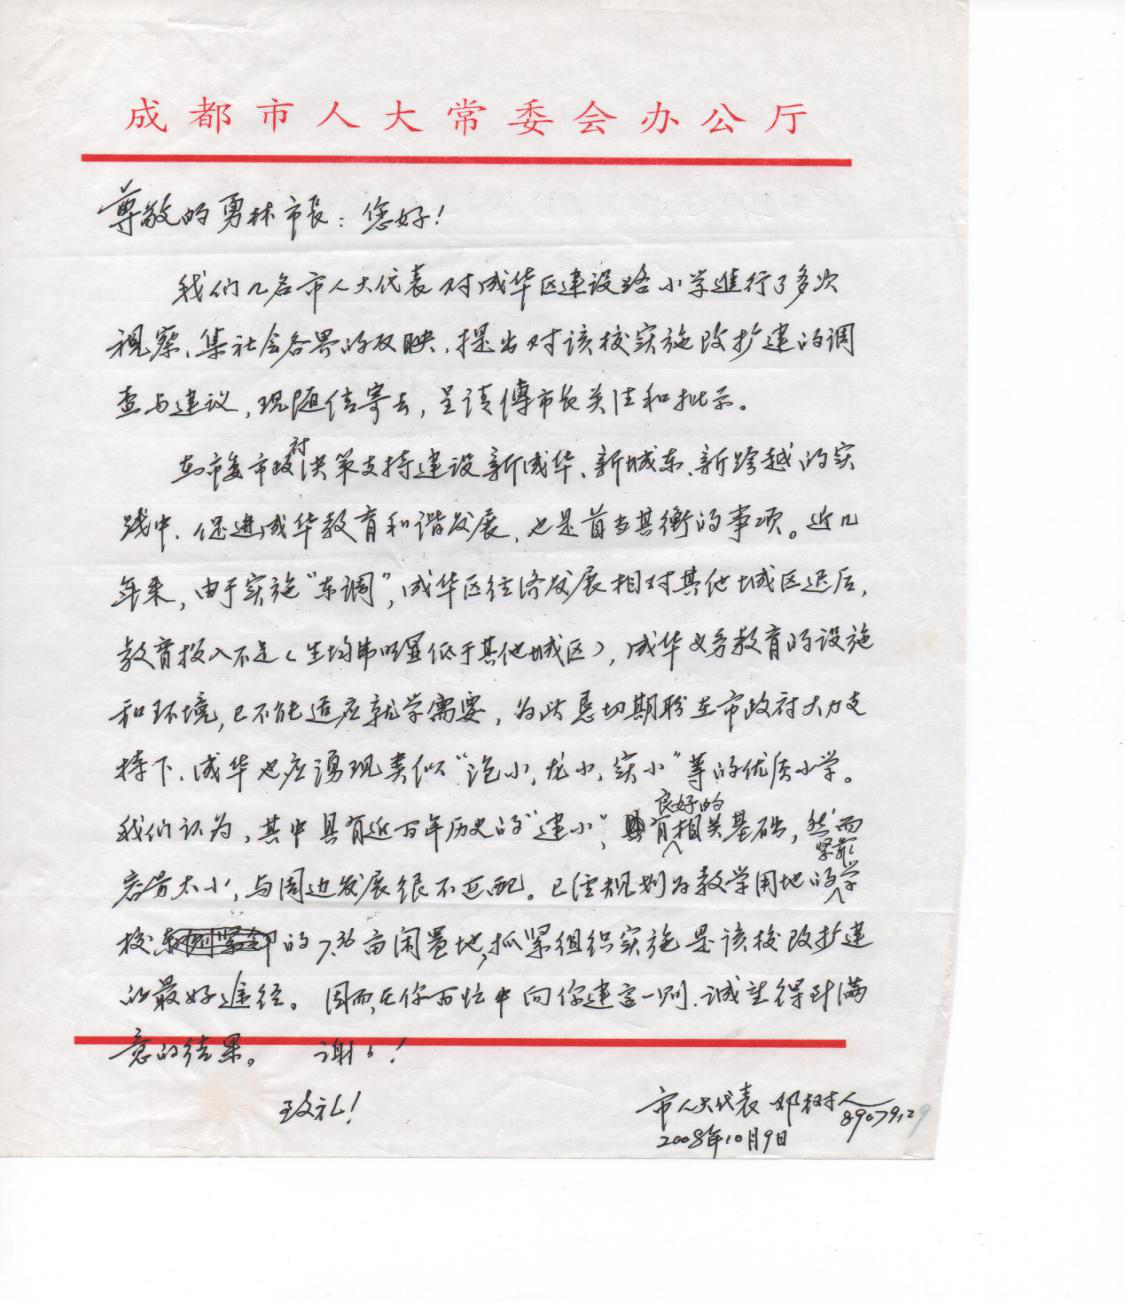 成都市人大常委会办公厅
尊敬的勇林市长：您好！
我们几名市人大代表对成华区建设路小学进行了多次
视察、集社会各界的反映，提出对该校实施改扩建的调
查与建议，现随信寄去，呈请傅市长关注和批示。
在市委市政府决策支持建设新成华、新城东、新跨越的实
践中，促进成华教育和谐发展，也是首当其衡的事项。近几
年来，由于实施“东调”，成华区经济发展相对其他城区迟后，
教育投入不足（生均明显低于其他城区），成华义务教育的设施
和环境，已不能适应就学需要，为此恳切期盼在市政府大力支
持下，成华也应涌现类似“泡小，龙小，实小”等的优质小学。
我们认为，其中具有近百年历史的“建小”，具有良好的相关基础，然而
容量太小，与周边发展很不匹配。已经规划为教学用地的紧靠学
校的7.36亩闲置地，抓紧组织实施是该校改扩建
的最好途径。因而，在你百忙中向你建言一则，诚望得到满
意的结果。 谢谢！
致礼！
市人大代表 邓树人
89079129
2008年10月9日